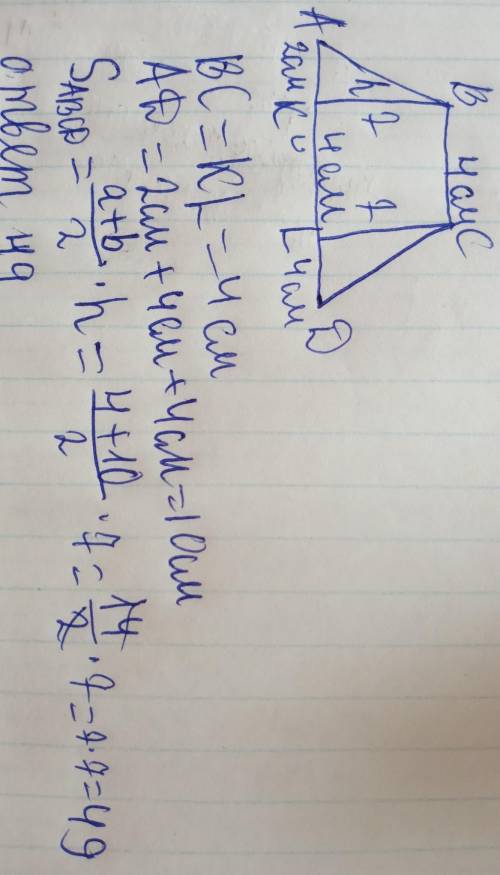 B 4см C
h 7 7
A 2см K 4см L 4см D
BC = KL = 4см
AD = 2см + 4см + 4см = 10см
S ABCD = a+b/2 · h = 4+10/2 · 7 = 14/2 · 7 = 7·7 = 49
ответ 49